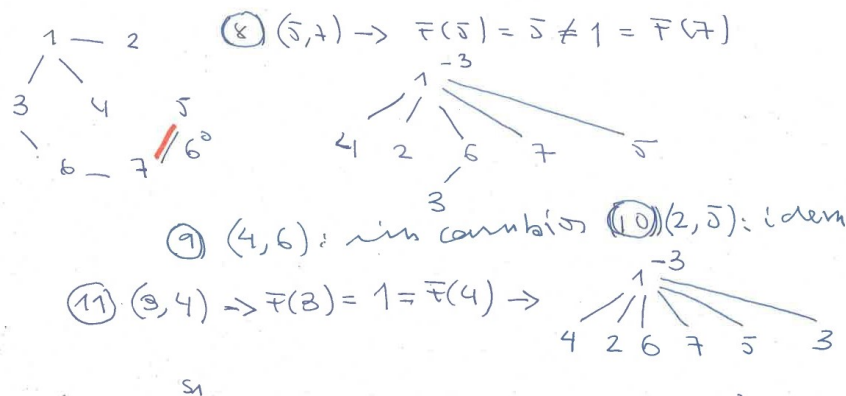 1 — 2
3 4 5
6 — 7 6º
⑧ (5,7) -> F(5) = 5 ≠ 1 = F(7)
1 -3
4 2 6 7 5
3
⑨ (4,6): sin cambios ⑩ (2,5): idem
⑪ (3,4) -> F(3) = 1 = F(4) ->
1 -3
4 2 6 7 5 3